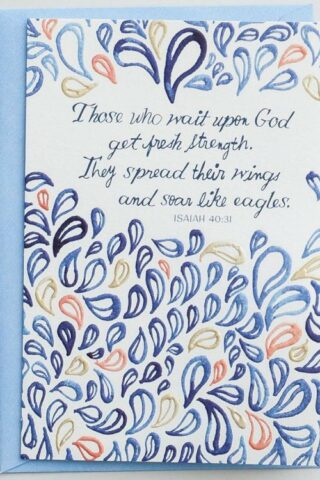 Those who wait upon God
get fresh strength.
They spread their wings
and soar like eagles.
ISAIAH 40:31